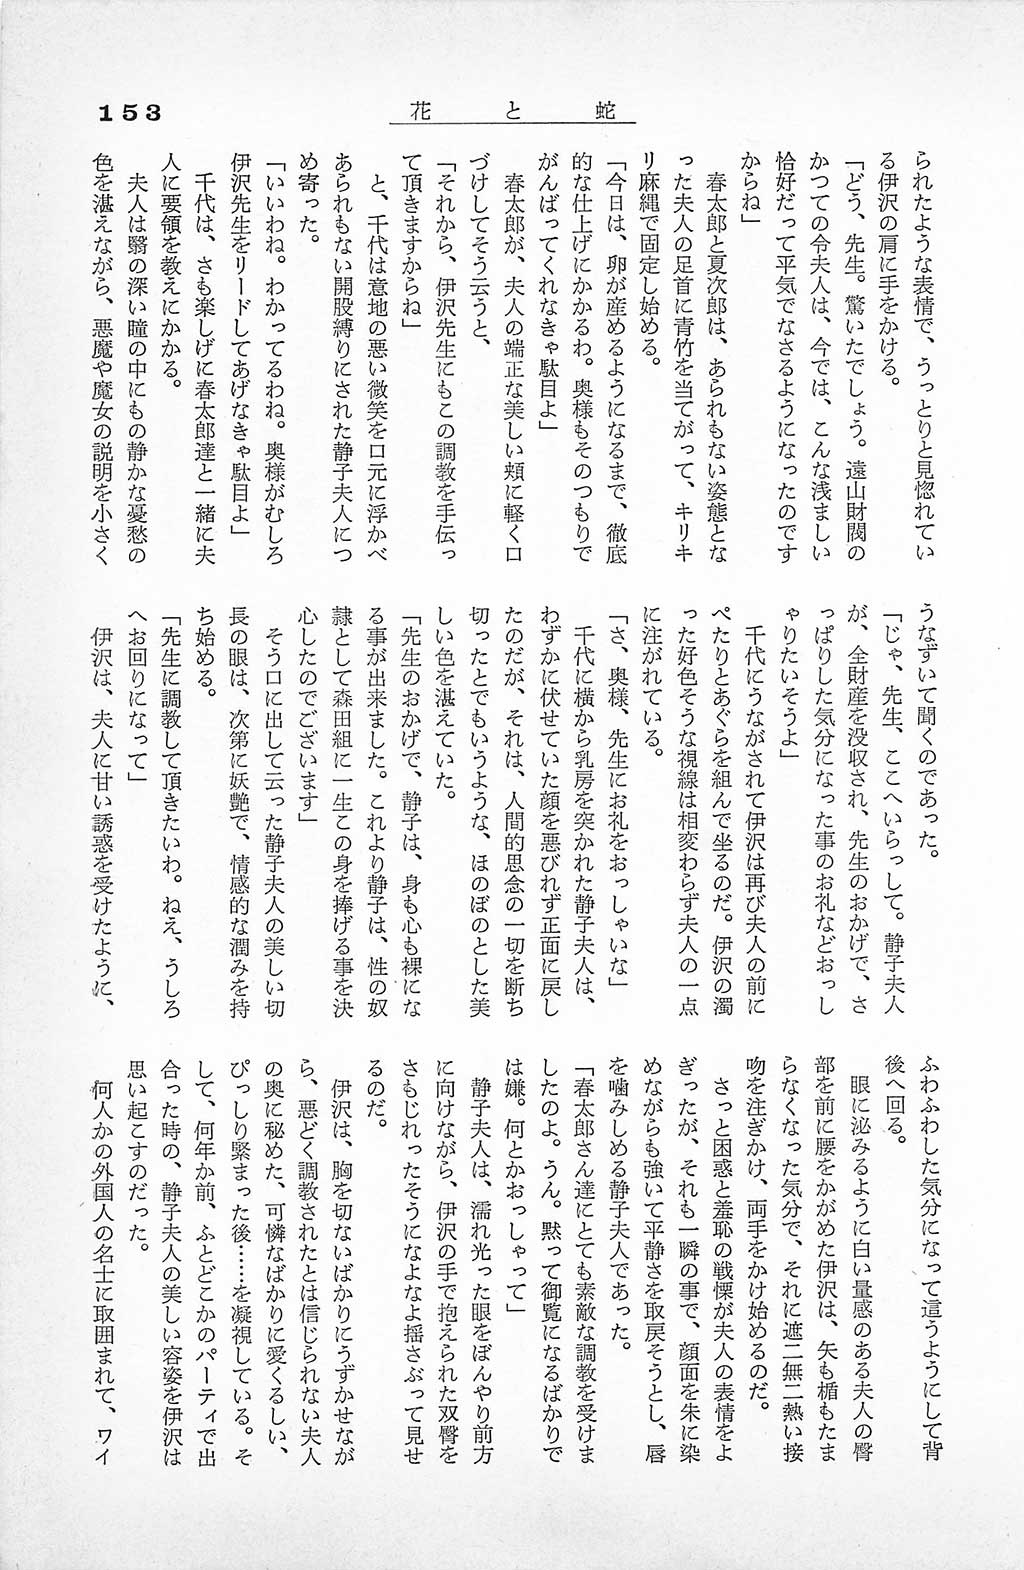 153
花と蛇
られたような表情で、うっとりと見惚れてい
る伊沢の肩に手をかける。
「どう、先生。驚いたでしょう。遠山財閥の
かつての令夫人は、今では、こんな浅ましい
恰好だって平気でなさるようになったのです
からね」
春太郎と夏次郎は、あられもない姿態とな
った夫人の足首に青竹を当てがって、キリキ
リ麻縄で固定し始める。
「今日は、卵が産めるようになるまで、徹底
的な仕上げにかかるわ。奥様もそのつもりで
がんばってくれなきゃ駄目よ」
春太郎が、夫人の端正な美しい頬に軽く口
づけしてそう云うと、
「それから、伊沢先生にもこの調教を手伝っ
て頂きますからね」
と、千代は意地の悪い微笑を口元に浮かべ
あられもない開股縛りにされた静子夫人につ
め寄った。
「いいわね。わかってるわね。奥様がむしろ
伊沢先生をリードしてあげなきゃ駄目よ」
千代は、さも楽しげに春太郎達と一緒に夫
人に要領を教えにかかる。
夫人は翳の深い瞳の中にもの静かな憂愁の
色を湛えながら、悪魔や魔女の説明を小さく
うなずいて聞くのであった。
「じゃ、先生、ここへいらっして。静子夫人
が、全財産を没収され、先生のおかげで、さ
っぱりした気分になった事のお礼などおっし
ゃりたいそうよ」
千代にうながされて伊沢は再び夫人の前に
ぺたりとあぐらを組んで坐るのだ。伊沢の濁
った好色そうな視線は相変わらず夫人の一点
に注がれている。
「さ、奥様、先生にお礼をおっしゃいな」
千代に横から乳房を突かれた静子夫人は、
わずかに伏せていた顔を悪びれず正面に戻し
たのだが、それは、人間的思念の一切を断ち
切ったとでもいうような、ほのぼのとした美
しい色を湛えていた。
「先生のおかげで、静子は、身も心も裸にな
る事が出来ました。これより静子は、性の奴
隷として森田組に一生この身を捧げる事を決
心したのでございます」
そう口に出して云った静子夫人の美しい切
長の眼は、次第に妖艶で、情感的な潤みを持
ち始める。
「先生に調教して頂きたいわ。ねえ、うしろ
へお回りになって」
伊沢は、夫人に甘い誘惑を受けたように、
ふわふわした気分になって這うようにして背
後へ回る。
眼に泌みるように白い量感のある夫人の臀
部を前に腰をかがめた伊沢は、矢も楯もたま
らなくなった気分で、それに遮二無二熱い接
吻を注ぎかけ、両手をかけ始めるのだ。
さっと困惑と羞恥の戦慄が夫人の表情をよ
ぎったが、それも一瞬の事で、顔面を朱に染
めながらも強いて平静さを取戻そうとし、唇
を噛みしめる静子夫人であった。
「春太郎さん達にとても素敵な調教を受けま
したのよ。うん。黙って御覧になるばかりで
は嫌。何とかおっしゃって」
静子夫人は、濡れ光った眼をぼんやり前方
に向けながら、伊沢の手で抱えられた双臀を
さもじれったそうになよなよ揺さぶって見せ
るのだ。
伊沢は、胸を切ないばかりにうずかせなが
ら、悪どく調教されたとは信じられない夫人
の奥に秘めた、可憐なばかりに愛くるしい、
ぴっしり緊まった後……を凝視している。そ
して、何年か前、ふとどこかのパーティで出
合った時の、静子夫人の美しい容姿を伊沢は
思い起こすのだった。
何人かの外国人の名士に取囲まれて、ワイ